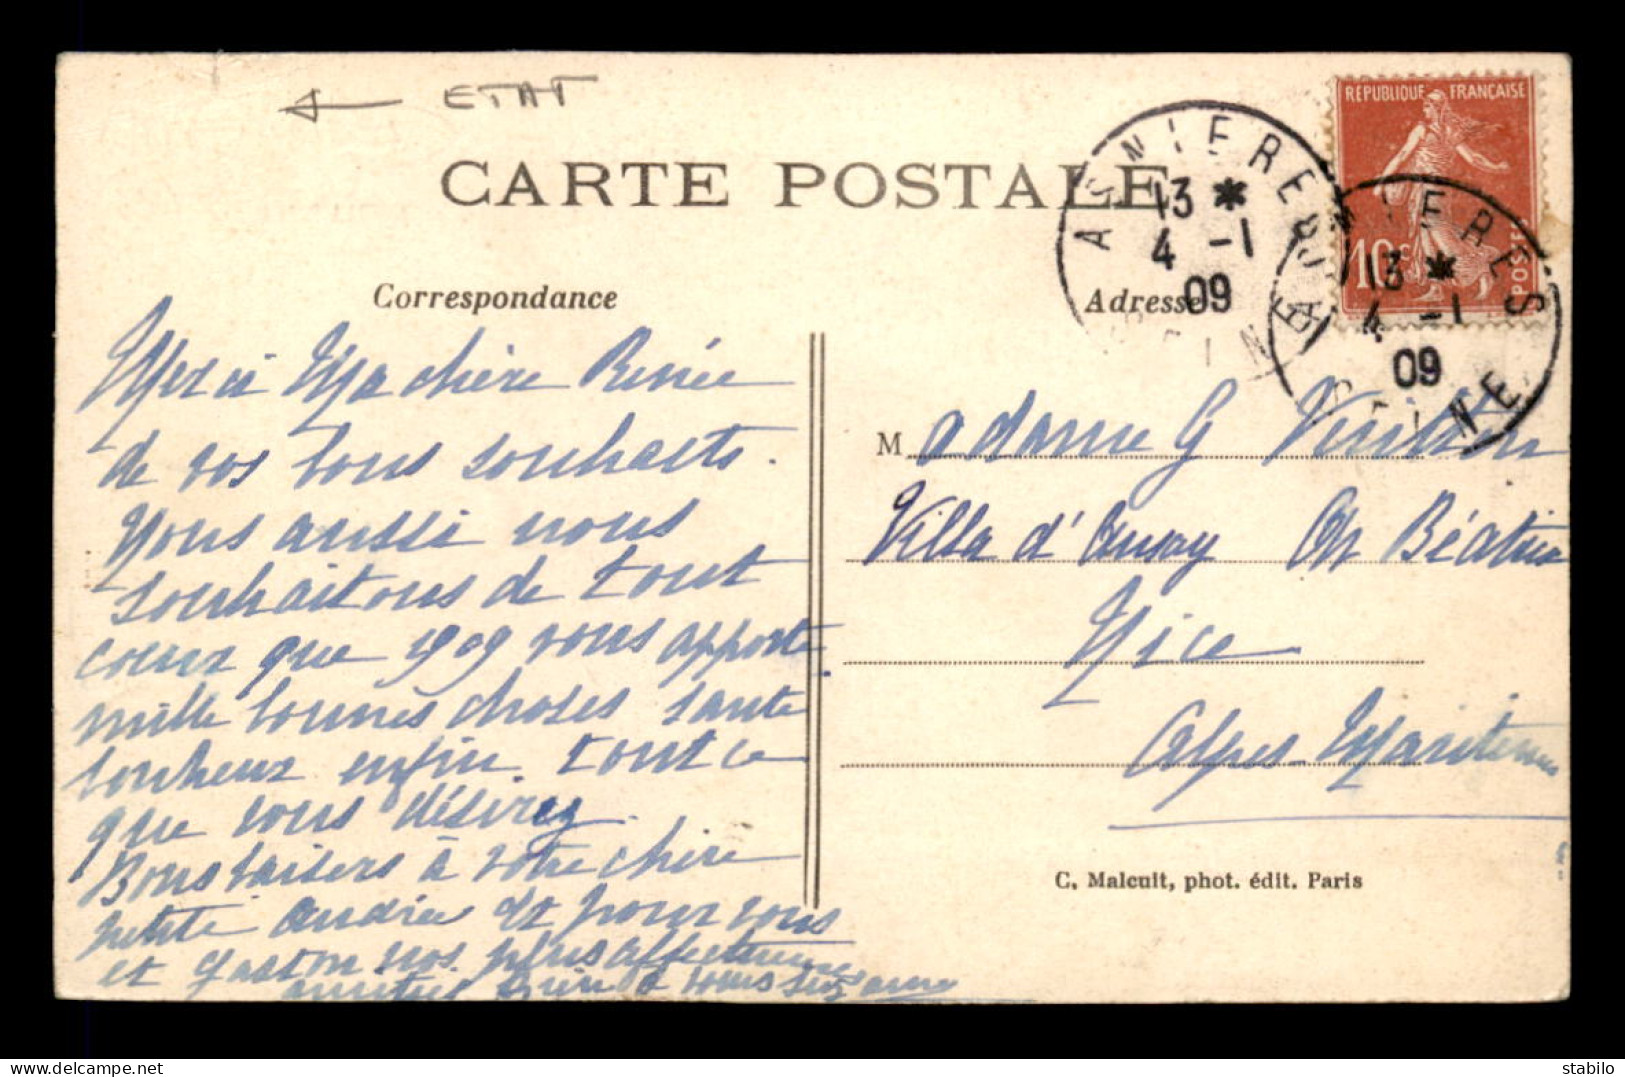 ETAT
CARTE POSTALE
REPUBLIQUE FRANÇAISE
10c
POSTES
ASNIERES
13 *
4 -1
09
SEINE
ASNIERES
13 *
4 -1
09
SEINE
Correspondance
Adresse
Merci Ma chère Renée
de vos bons souhaits.
Nous aussi nous
souhaitons de tout
coeur que 1909 vous apporte
mille bonnes choses santé
bonheur enfin tout ce
que vous désirez.
Bons baisers à votre chère
petite Andrée et pour vous
et Gaston nos plus affectueuses
amitiés à tous
Madame G
Villa d' Auray Ch Béatrix
Nice
Alpes-Maritimes
C. Malcuit, phot. édit. Paris
delcampe.net
stabilo